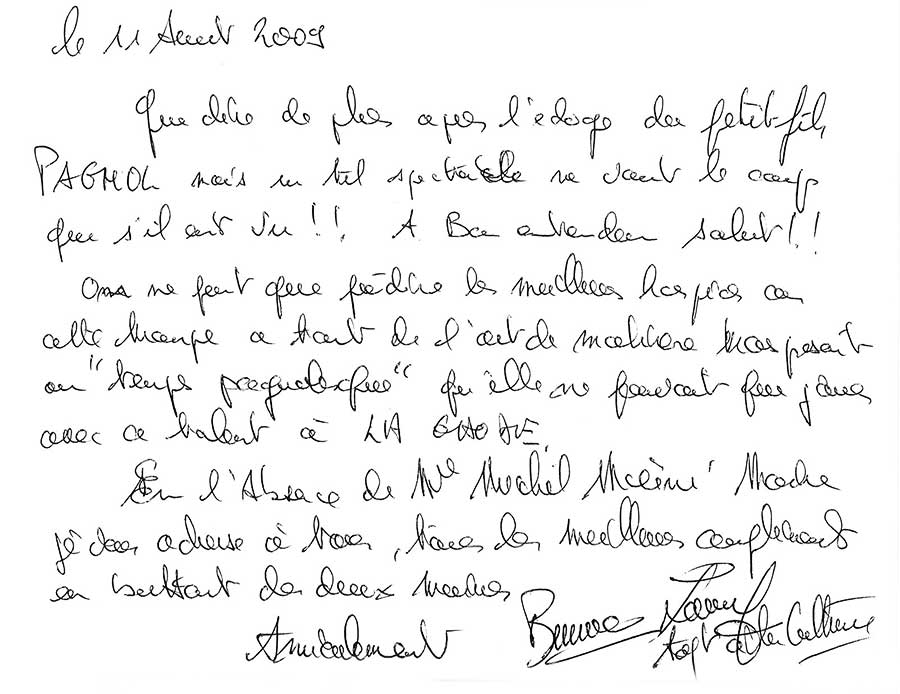 le 11 Août 2009
Que dire de plus après l'éloge du petit-fils
PAGNOL mais un tel spectacle ne vaut le coup
que s'il est vu !! A Bon entendeur salut !!
On ne peut que prédire les meilleurs car
cette troupe a tant de l'art de transposent
au "temps pagnolesque" qu'elle ne pouvait que jouer
avec ce talent à LA
En l'Absence de Mr Michel Maire
je vous adresse à tous, tous les meilleurs compliments
en battant des deux mains
Amicalement Bruno adjt à la Culture